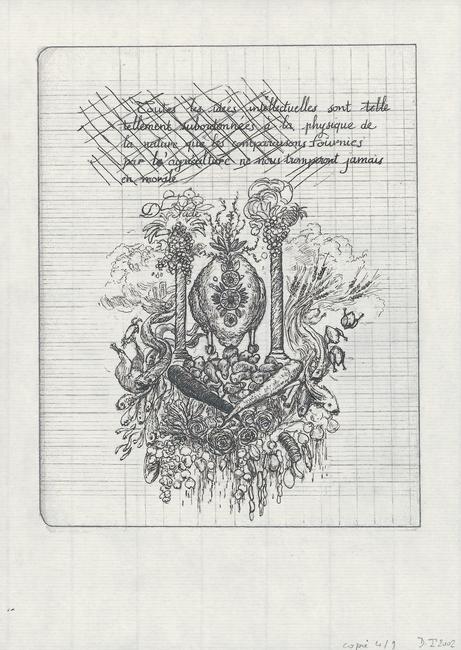 Toutes les idées intellectuelles sont telle
tellement subordonnées à la physique de
la nature que les comparaisons fournies
par l'agriculture ne nous tromperont jamais
en morale
copie 4/9